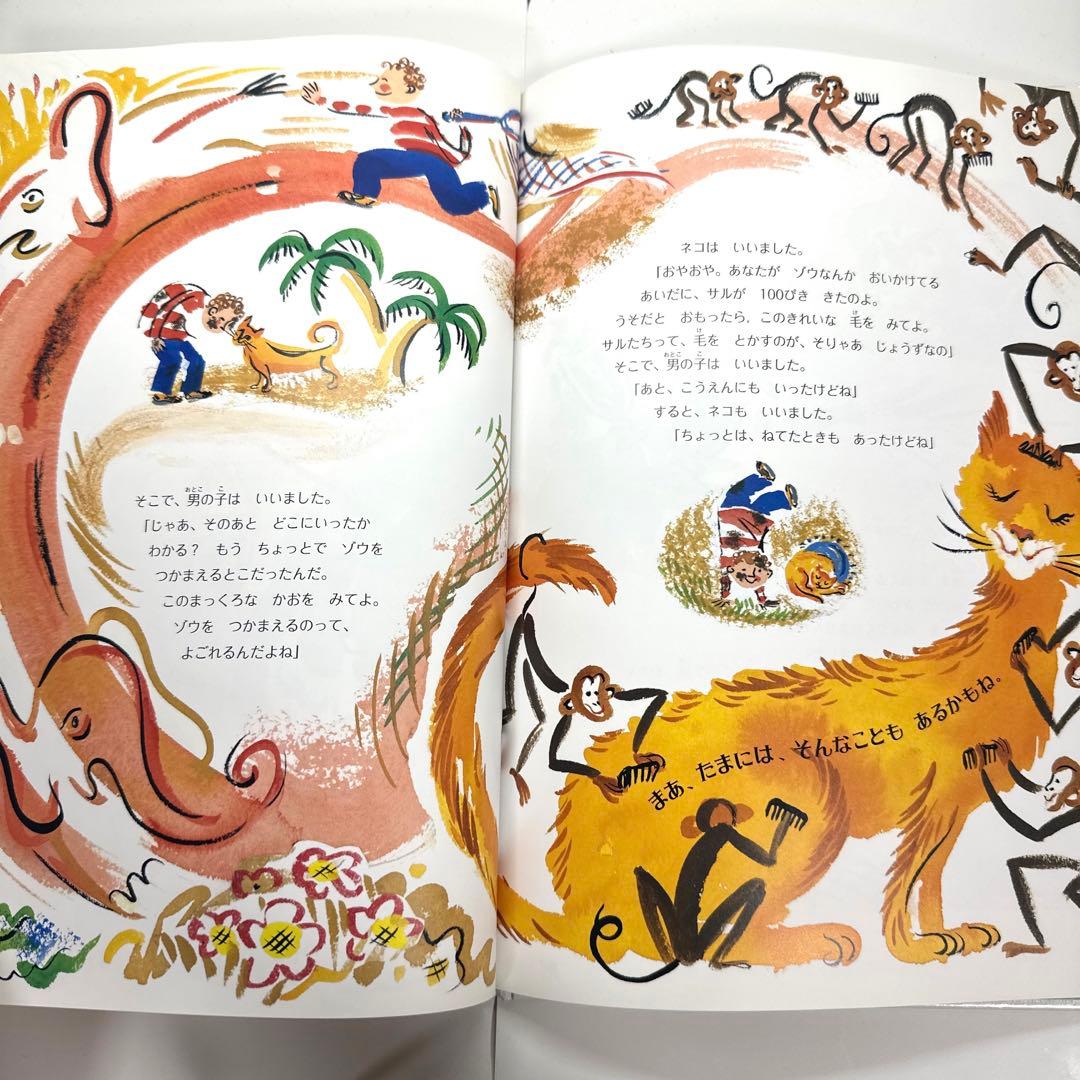 そこで、男の子は　いいました。
「じゃあ、そのあと　どこにいったか
わかる？　もう　ちょっとで　ゾウを
つかまえるとこだったんだ。
このまっくろな　かおを　みてよ。
ゾウを　つかまえるのって、
よごれるんだよね」
ネコは　いいました。
「おやおや。あなたが　ゾウなんか　おいかけてる
あいだに、サルが　100ぴき　きたのよ。
うそだと　おもったら、このきれいな　毛を　みてよ。
サルたちって、毛を　とかすのが、そりゃあ　じょうずなの」
そこで、男の子は　いいました。
「あと、こうえんにも　いったけどね」
すると、ネコも　いいました。
「ちょっとは、ねてたときも　あったけどね」
まあ、たまには、そんなことも　あるかもね。